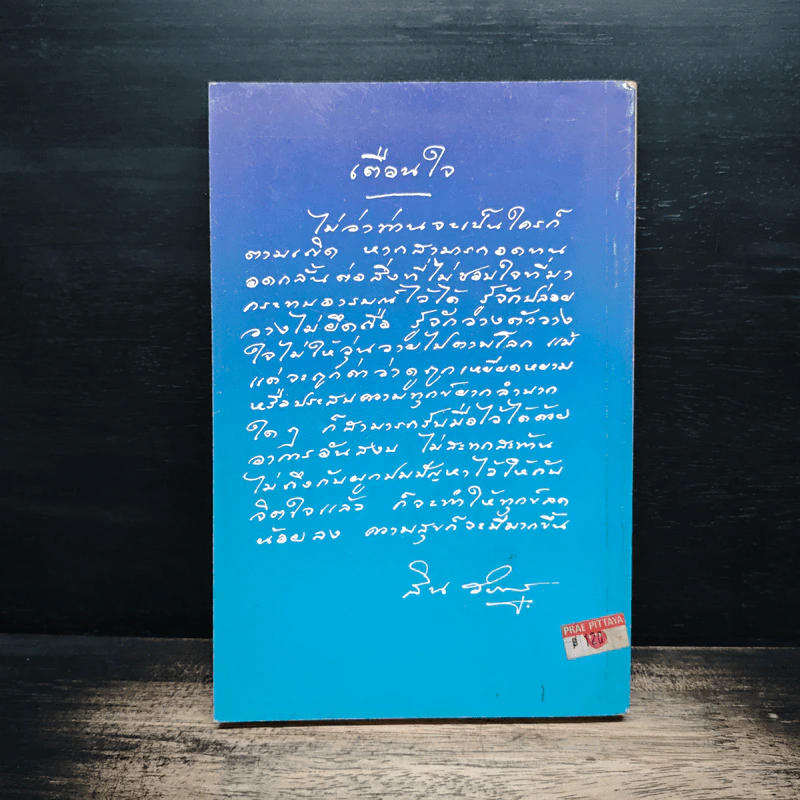 เตือนใจ
ไม่ว่าท่านจะเป็นใครก็
ตามเถิด หากสามารถอดทน
อดกลั้นต่อสิ่งที่ไม่ชอบใจที่มา
กระทบอารมณ์ไว้ได้ รู้จักปล่อย
วางไม่ยึดถือ รู้จักวางตัววาง
ใจไม่ให้วุ่นวายไปตามโลก แม้
แต่จะถูกด่าว่าดูถูกเหยียดหยาม
หรือประสบความทุกข์ยากลำบาก
ใด ๆ ก็สามารถรับมือไว้ได้ด้วย
อาการอันสงบ ไม่สะทกสะท้าน
ไม่ถึงกับผูกปมปัญหาไว้ให้กับ
จิตใจแล้ว ก็จะทำให้ทุกข์ลด
น้อยลง ความสุขก็จะมีมากขึ้น
สิน
PRAE PITTAYA
฿ 120